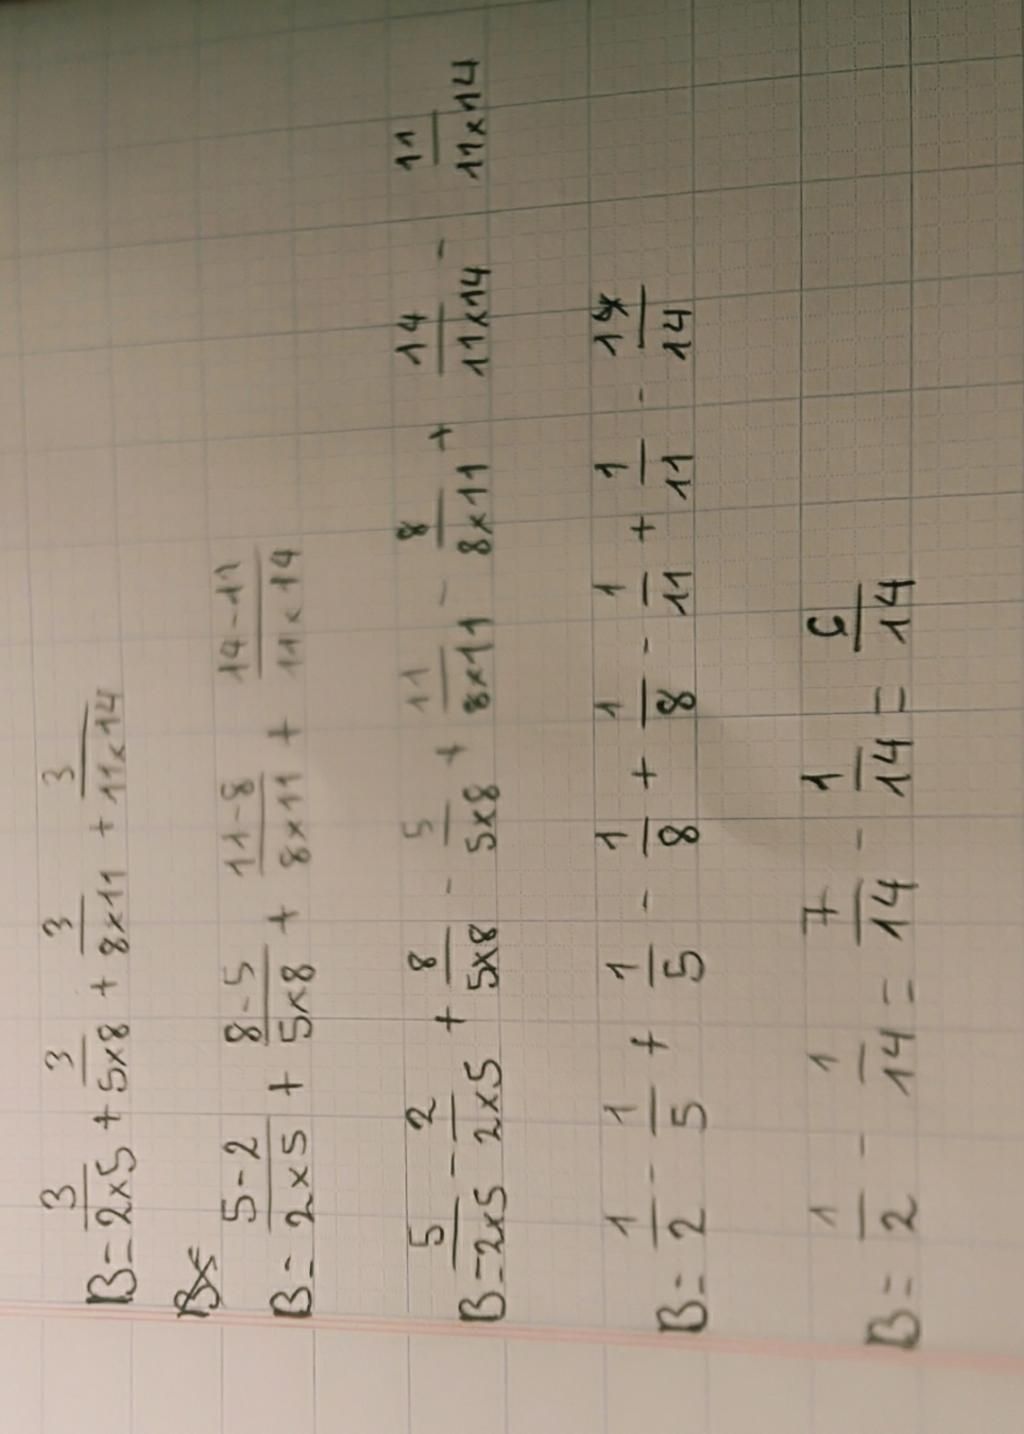 B = 3/2×5 + 3/5×8 + 3/8×11 + 3/11×14
B=
B = 5-2/2×5 + 8-5/5×8 + 11-8/8×11 + 14-11/11×14
B = 5/2×5 - 2/2×5 + 8/5×8 - 5/5×8 + 11/8×11 - 8/8×11 + 14/11×14 - 11/11×14
B = 1/2 - 1/5 + 1/5 - 1/8 + 1/8 - 1/11 + 1/11 - 1/14
B = 1/2 - 1/14 = 7/14 - 1/14 = /14